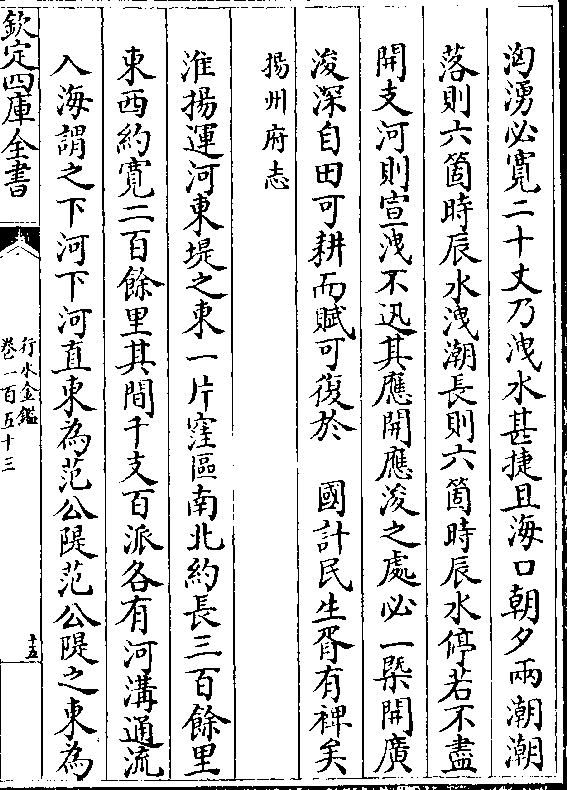 洶湧必寬二十丈乃洩水甚捷且海口朝夕兩潮潮
落則六箇時辰水洩潮長則六箇時辰水停若不盡
開支河則宣洩不迅其應開應浚之處必一槩開廣
浚深自田可耕而賦可復於　國計民生胥有裨矣
揚州府志
淮揚運河東堤之東一片窪區南北約長三百餘里
東西約寬二百餘里其間千支百派各有河溝通流
入海謂之下河下河直東為范公隄范公隄之東為
欽定四庫全書
行水金鑑
卷一百五十三
十五